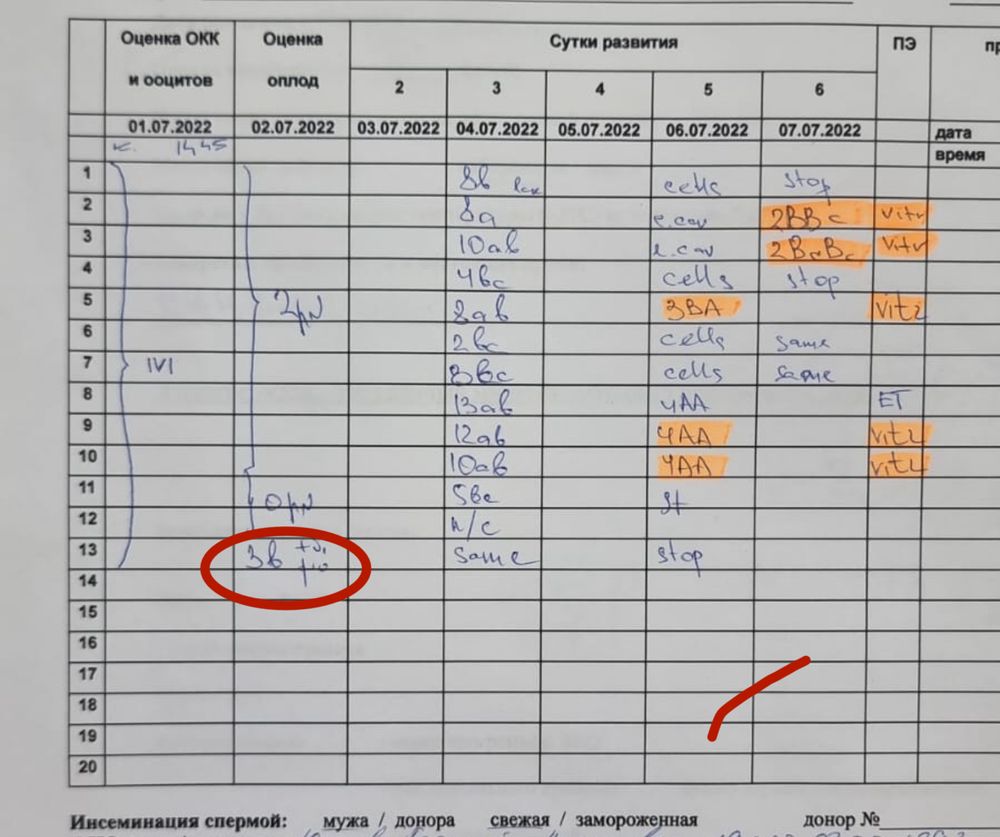 Оценка ОКК и ооцитов Оценка оплод Сутки развития ПЭ пр
2 3 4 5 6
01.07.2022 02.07.2022 03.07.2022 04.07.2022 05.07.2022 06.07.2022 07.07.2022 дата
к. 1445 время
1 8b cells stop
2 8a e.cav 2BBc vitr
3 10ab e.cav 2BcBc vitr
4 4bc cells stop
5 2pN 8ab 3BA vitr
6 2bc cells same
7 IVI 3bc cells same
8 13ab 4AA ET
9 12ab 4AA vitr
10 10ab 4AA vitr
11 0pN 5bc st
12 N/C
13 3b same stop
14
15
16
17
18
19
20
Инсеминация спермой: мужа / донора свежая / замороженная донор №